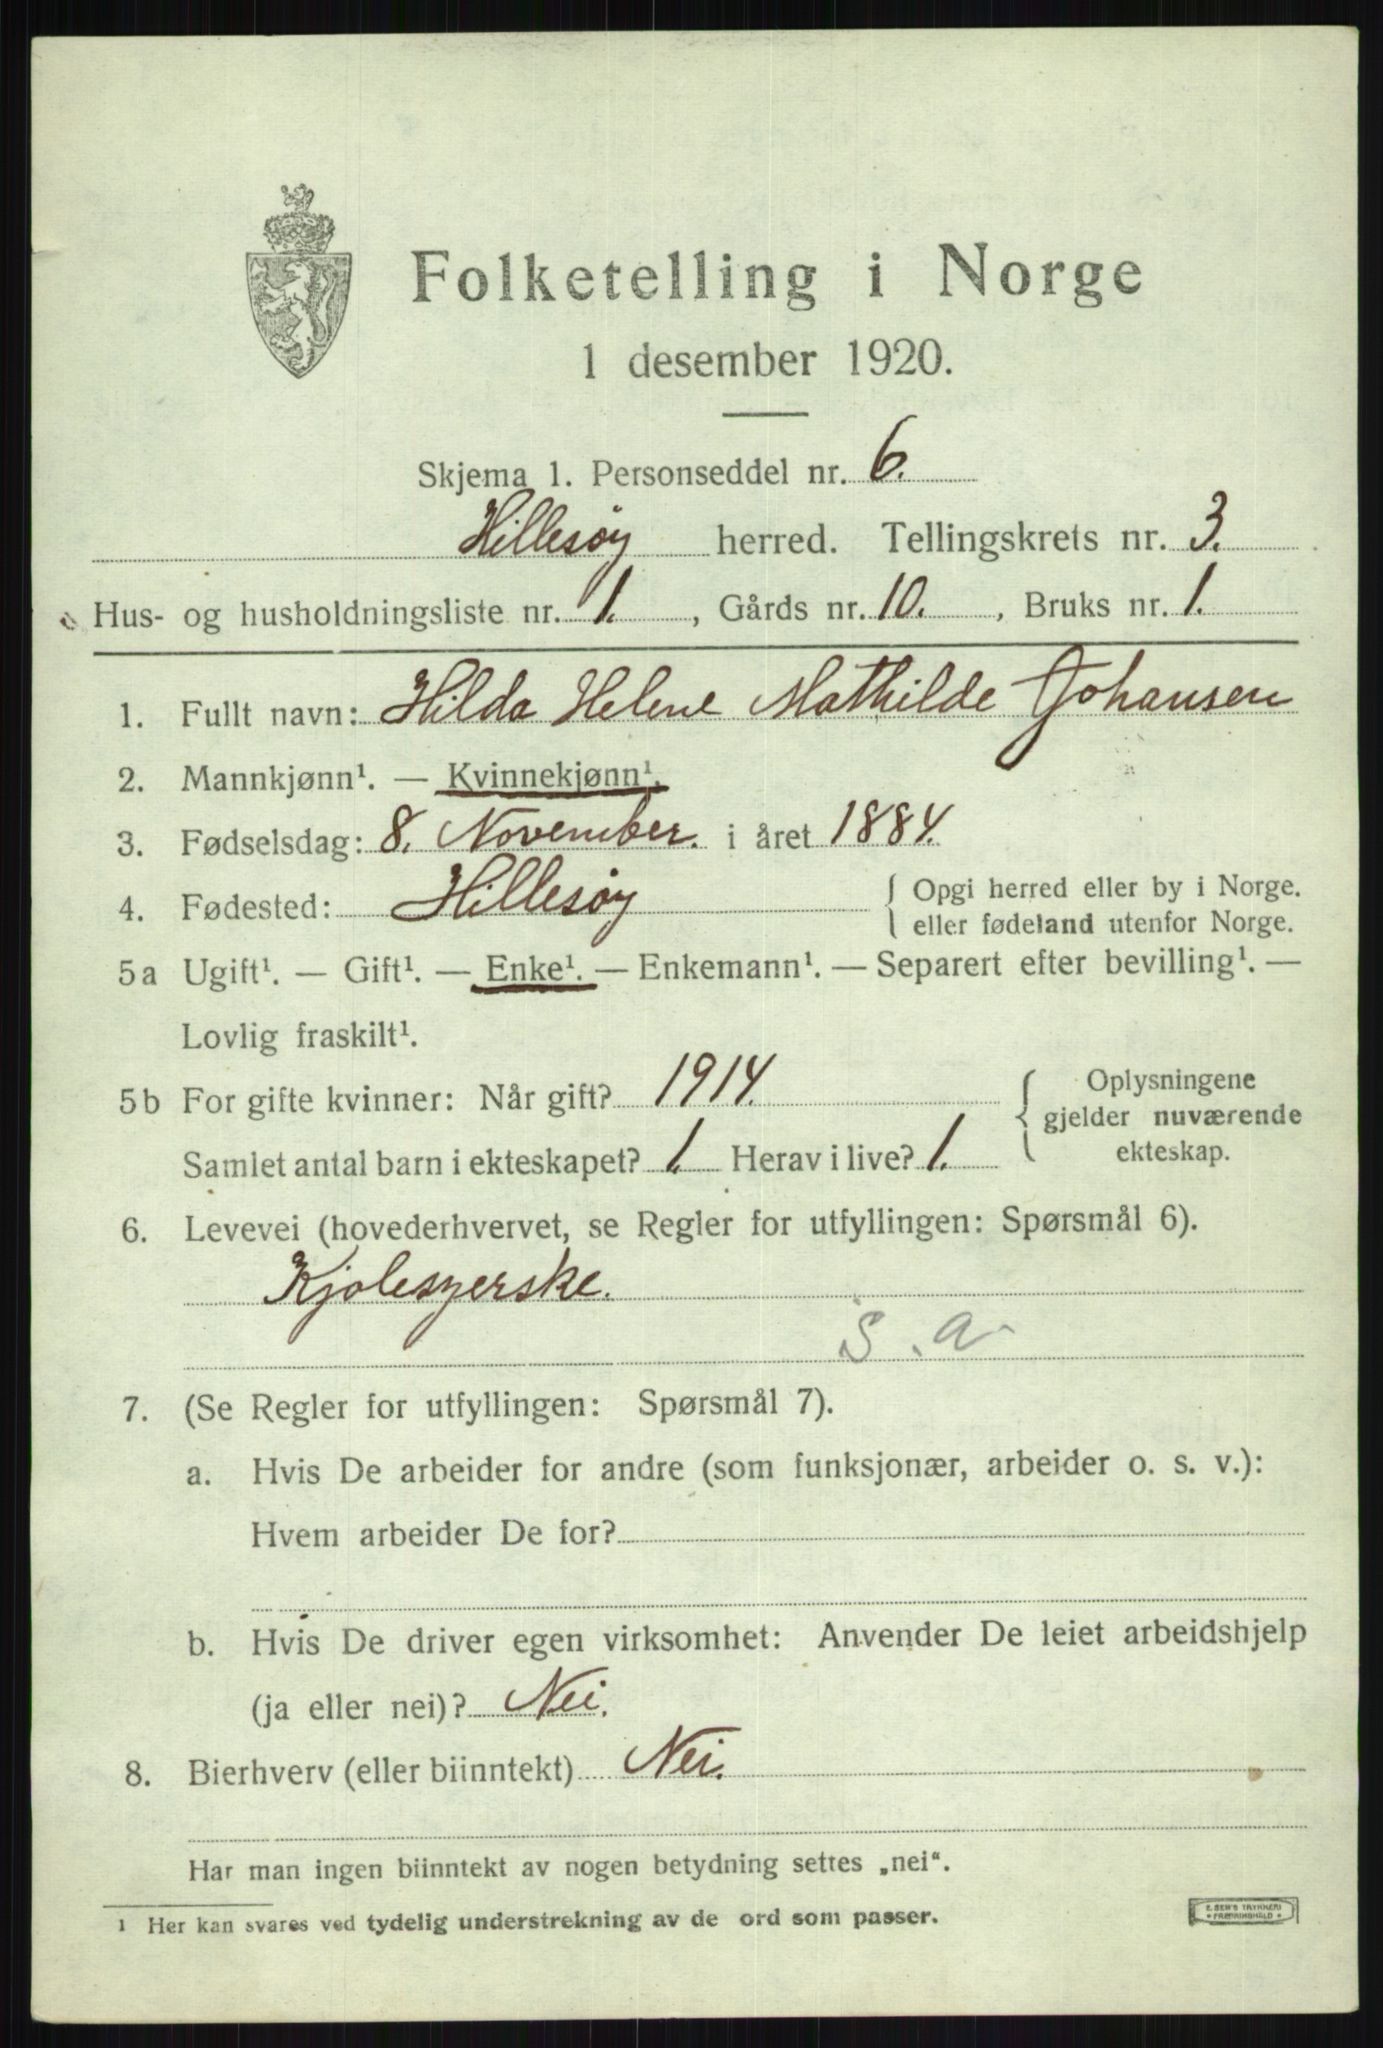 Folketelling i Norge
1 desember 1920.
Skjema 1. Personseddel nr. 6.
Hillesøy herred. Tellingskrets nr. 3.
Hus- og husholdningsliste nr. 1. , Gårds nr. 10. , Bruks nr. 1.
1. Fullt navn: Hilda Helene Mathilde Johansen
2. Mannkjønn¹. — Kvinnekjønn¹.
3. Fødselsdag: 8. November. i året 1884.
4. Fødested: Hillesøy { Opgi herred eller by i Norge.
eller fødeland utenfor Norge.
5a Ugift¹. — Gift¹. — Enke¹. — Enkemann¹. — Separert efter bevilling¹. —
Lovlig fraskilt¹.
5b For gifte kvinner: Når gift? 1914.
Samlet antal barn i ekteskapet? 1. Herav i live? 1.
{ Oplysningene
gjelder nuværende
ekteskap.
6. Levevei (hovederhvervet, se Regler for utfyllingen: Spørsmål 6).
Kjolesyerske.
S. a
7. (Se Regler for utfyllingen: Spørsmål 7).
a. Hvis De arbeider for andre (som funksjonær, arbeider o. s. v.):
Hvem arbeider De for?
b. Hvis De driver egen virksomhet: Anvender De leiet arbeidshjelp
(ja eller nei)? Nei.
8. Bierhverv (eller biinntekt) Nei.
Har man ingen biinntekt av nogen betydning settes „nei“.
1 Her kan svares ved tydelig understrekning av de ord som passer.